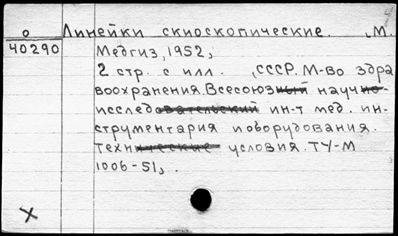 о Линейки скиоскопические. , М.
40290 Медгиз, 1952,
2 стр. с илл. , СССР. М-во здра
воохранения. Всесоюзный научно-
исследовательский ин-т мед. ин-
струментария и оборудования.
Технические условия. ТУ-М
1006-51, .
X